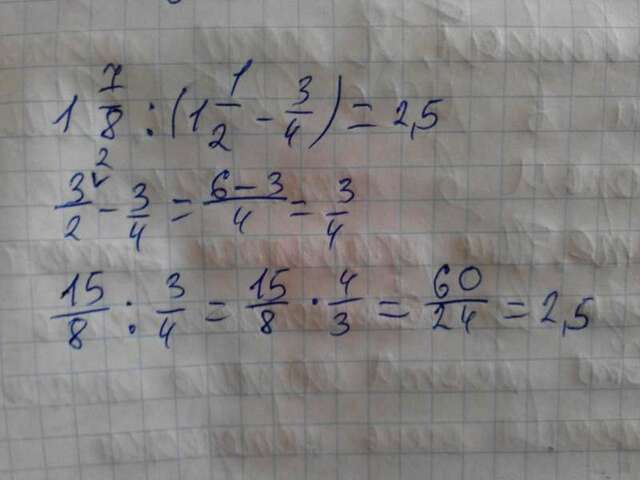 1 7/8 : (1 1/2 - 3/4) = 2,5
3/2 ² - 3/4 = (6-3)/4 = 3/4
15/8 : 3/4 = 15/8 · 4/3 = 60/24 = 2,5